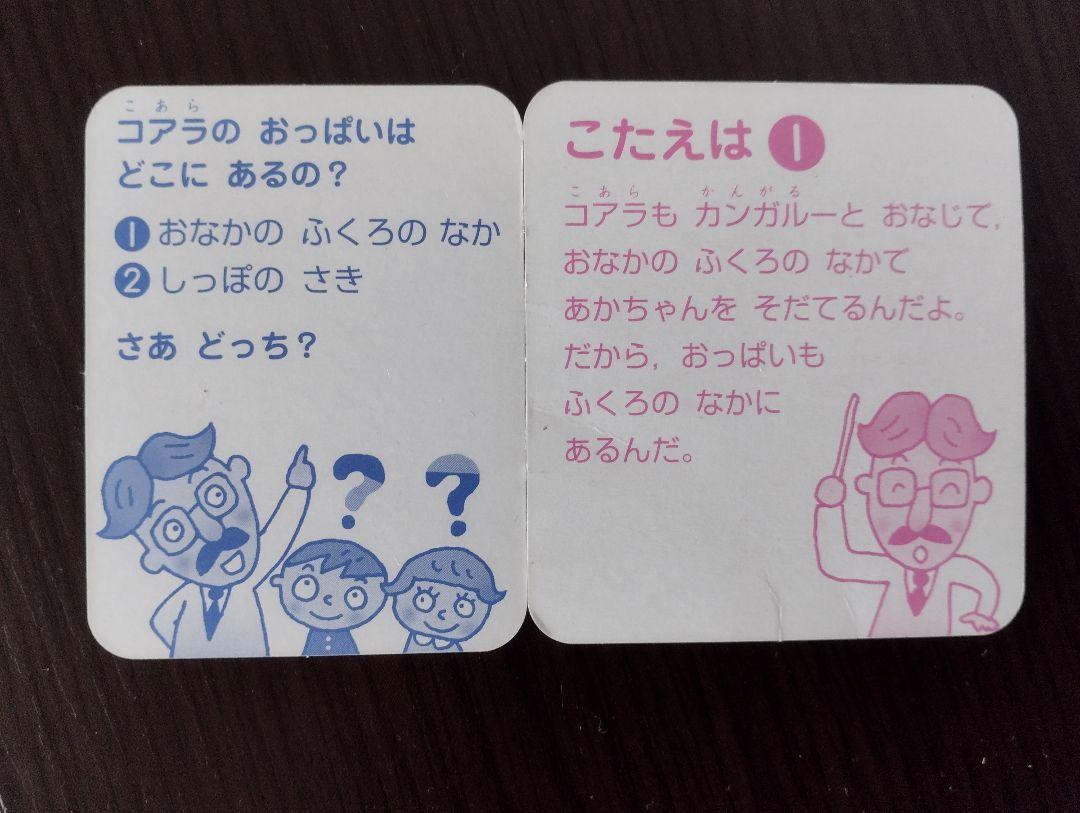 こあら
コアラの おっぱいは
どこに あるの？
❶おなかの ふくろの なか
❷しっぽの さき
さあ どっち？
？ ？
こたえは❶
こあら かんがる
コアラも カンガルーと おなじで,
おなかの ふくろの なかで
あかちゃんを そだてるんだよ。
だから, おっぱいも
ふくろの なかに
あるんだ。